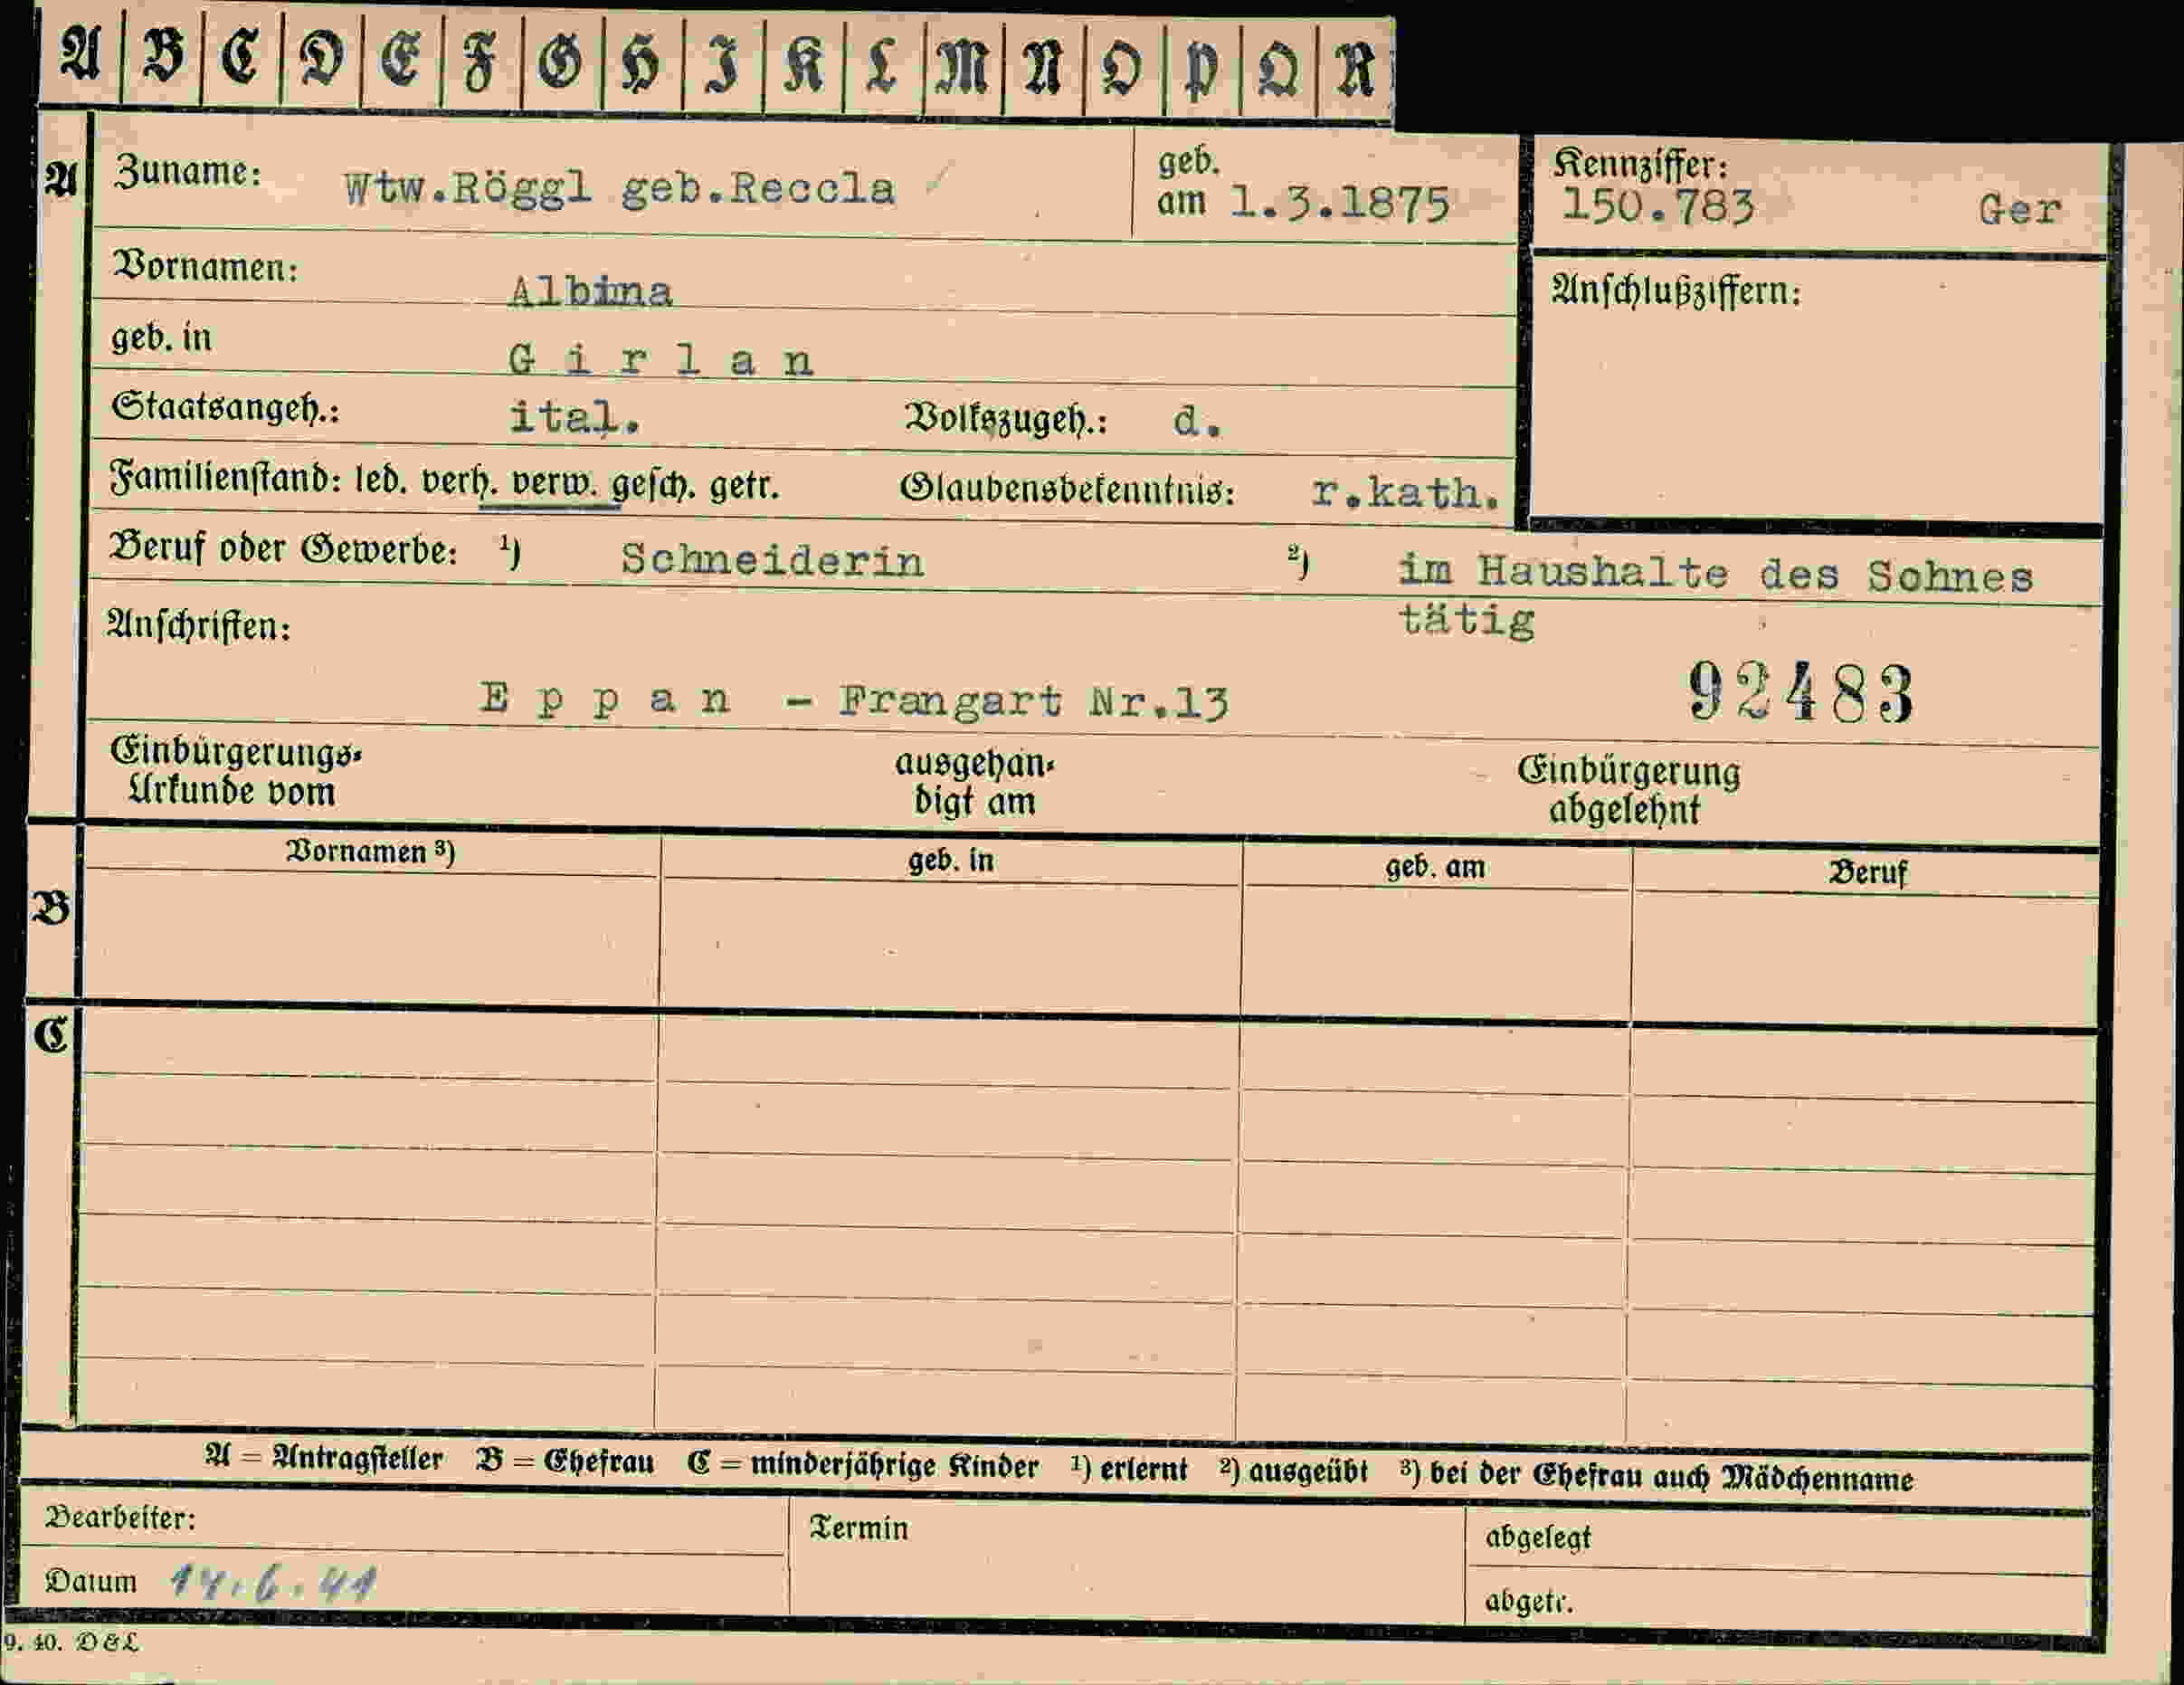 A B C D E F G H I K L M N O P Q R
A Zuname: Wtw.Röggl geb.Reccla geb. am 1.3.1875 Kennziffer: 150.783 Ger
Vornamen: Albina Anschlußziffern:
geb. in G i r l a n
Staatsangeh.: ital. Volkszugeh.: d.
Familienstand: led. verh. verw. gesch. getr. Glaubensbekenntnis: r.kath.
Beruf oder Gewerbe: ¹) Schneiderin ²) im Haushalte des Sohnes
Anschriften: tätig
E p p a n - Frangart Nr.13 92483
Einbürgerungs- ausgehän- Einbürgerung
Urkunde vom digt am abgelehnt
Vornamen ³) geb. in geb. am Beruf
B
C
A = Antragsteller B = Ehefrau C = minderjährige Kinder ¹) erlernt ²) ausgeübt ³) bei der Ehefrau auch Mädchenname
Bearbeiter: Termin abgelegt
Datum 14.6.41 abgetr.
9. 40. D & L